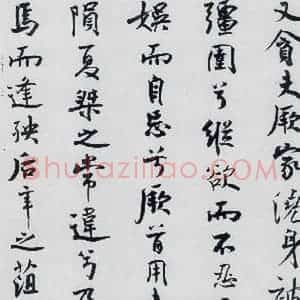 又貪夫厥家澆身被
彊圉兮縱欲而不忍
娛而自忘兮厥首用
隕夏桀之常違兮乃
焉而逢殃后辛之菹
Shufaziliao.COM